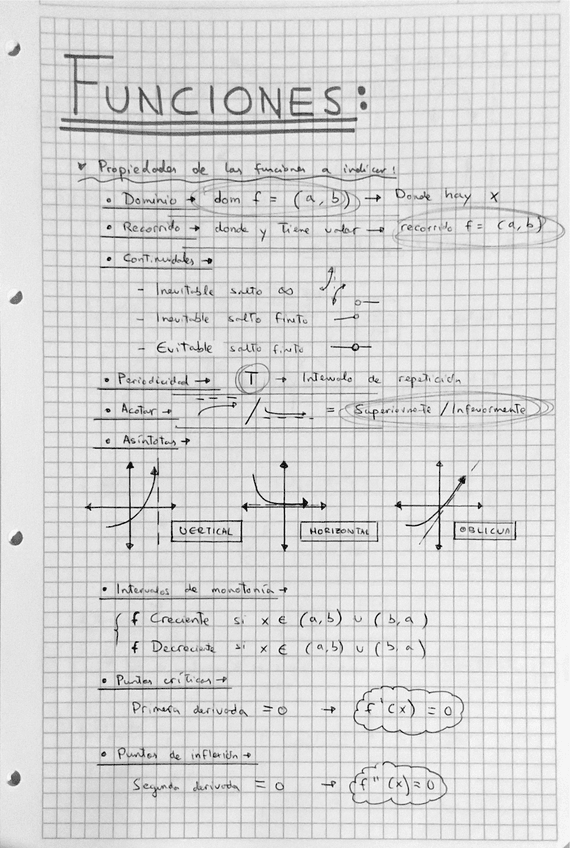 FUNCIONES:
Propiedades de las funciones a indicar!
• Dominio → dom f = (a, b) → Donde hay x
• Recorrido → donde y tiene valor → recorrido f = (a, b)
• Continuidades →
- Inevitable salto ∞
- Inevitable salto finito
- Evitable salto finito
• Periodicidad → T → Intervalo de repetición
• Acotar → / = Superiormente / Inferiormente
• Asíntotas →
VERTICAL HORIZONTAL OBLICUA
• Intervalos de monotonía →
f Creciente si x ∈ (a, b) ∪ (b, a)
f Decreciente si x ∈ (a, b) ∪ (b, a)
• Puntos críticos →
Primera derivada = 0 → f'(x) = 0
• Puntos de inflexión →
Segunda derivada = 0 → f''(x) = 0